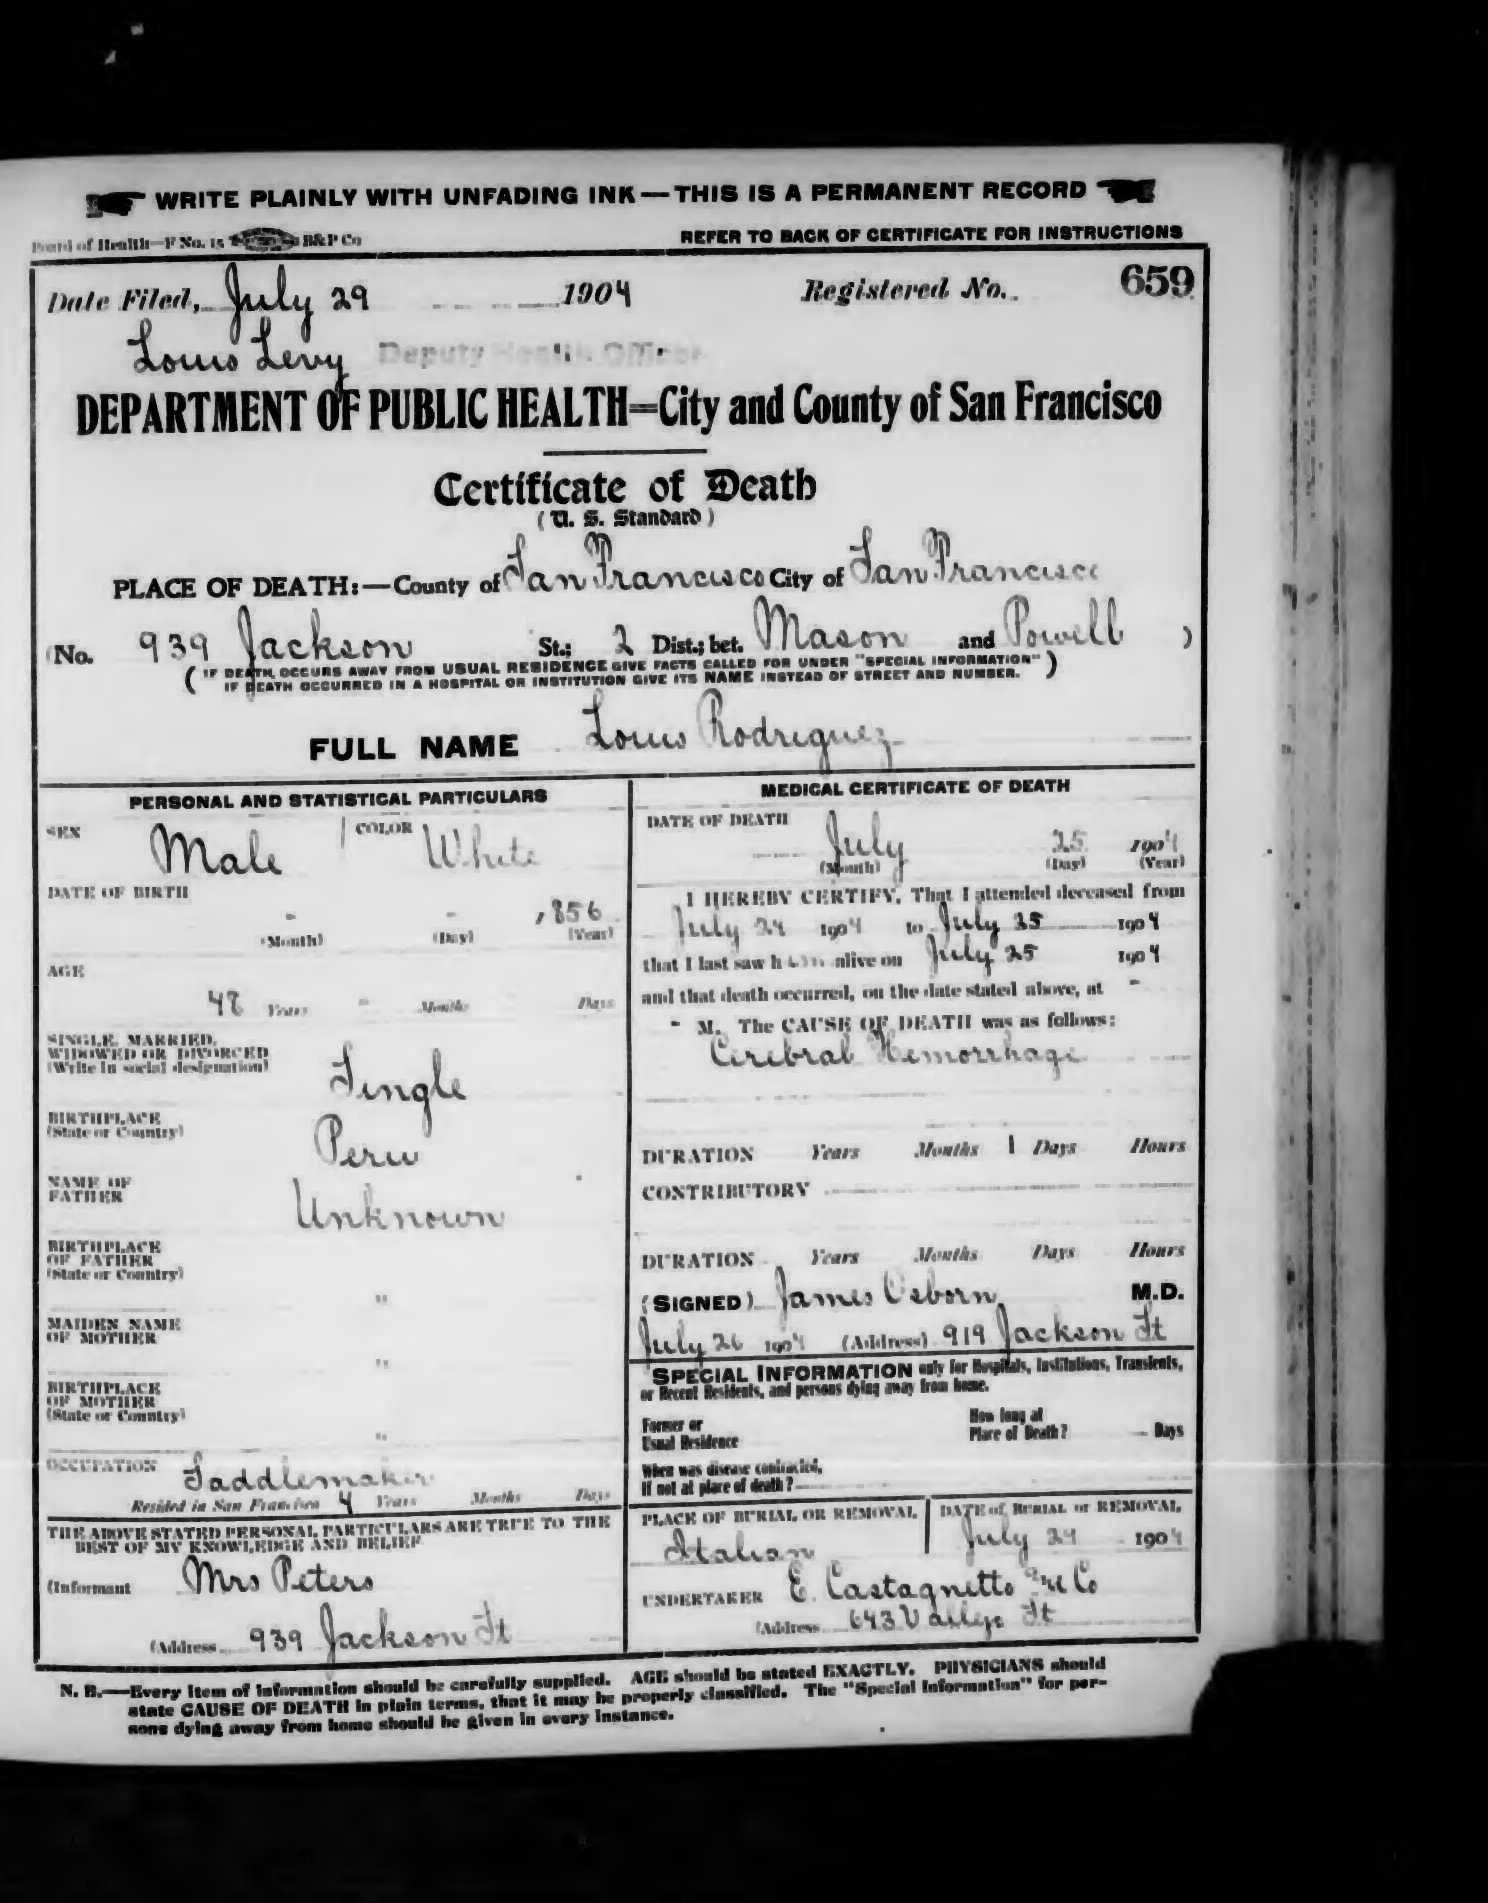 WRITE PLAINLY WITH UNFADING INK — THIS IS A PERMANENT RECORD
Board of Health—F No. 15 B&P Co
REFER TO BACK OF CERTIFICATE FOR INSTRUCTIONS
Date Filed, July 29 1904 Registered No. 659
Louis Levy Deputy Health Officer
DEPARTMENT OF PUBLIC HEALTH=City and County of San Francisco
Certificate of Death
(U. S. Standard)
PLACE OF DEATH:—County of San Francisco City of San Francisco
(No. 939 Jackson St.; 2 Dist.; bet. Mason and Powell )
( IF DEATH OCCURS AWAY FROM USUAL RESIDENCE GIVE FACTS CALLED FOR UNDER "SPECIAL INFORMATION" )
IF DEATH OCCURRED IN A HOSPITAL OR INSTITUTION GIVE ITS NAME INSTEAD OF STREET AND NUMBER.
FULL NAME Louis Rodriguez
PERSONAL AND STATISTICAL PARTICULARS
SEX Male COLOR White
DATE OF BIRTH
- - 1856
(Month) (Day) (Year)
AGE
48 Years - Months Days
SINGLE, MARRIED,
WIDOWED OR DIVORCED
(Write in social designation) Single
BIRTHPLACE
(State or Country) Peru
NAME OF
FATHER Unknown
BIRTHPLACE
OF FATHER
(State or Country)
"
MAIDEN NAME
OF MOTHER
"
BIRTHPLACE
OF MOTHER
(State or Country)
"
OCCUPATION Saddlemaker
Resided in San Francisco 4 Years Months Days
THE ABOVE STATED PERSONAL PARTICULARS ARE TRUE TO THE
BEST OF MY KNOWLEDGE AND BELIEF
(Informant Mrs Peters
(Address 939 Jackson St
MEDICAL CERTIFICATE OF DEATH
DATE OF DEATH
July 25 1904
(Month) (Day) (Year)
I HEREBY CERTIFY, That I attended deceased from
July 24 1904 to July 25 1904
that I last saw him alive on July 25 1904
and that death occurred, on the date stated above, at -
- M. The CAUSE OF DEATH was as follows:
Cerebral Hemorrhage
DURATION Years Months 1 Days Hours
CONTRIBUTORY
DURATION Years Months Days Hours
(SIGNED) James Osborn M.D.
July 26 1904 (Address) 919 Jackson St
SPECIAL INFORMATION only for Hospitals, Institutions, Transients,
or Recent Residents, and persons dying away from home.
Former or
Usual Residence
How long at
Place of Death? Days
When was disease contracted,
If not at place of death?
PLACE OF BURIAL OR REMOVAL
Italian
DATE of BURIAL or REMOVAL
July 29 1904
UNDERTAKER E. Castagnetto Co
(Address 643 Vallejo St
N. B.—Every item of information should be carefully supplied. AGE should be stated EXACTLY. PHYSICIANS should
state CAUSE OF DEATH in plain terms, that it may be properly classified. The "Special Information" for per-
sons dying away from home should be given in every instance.